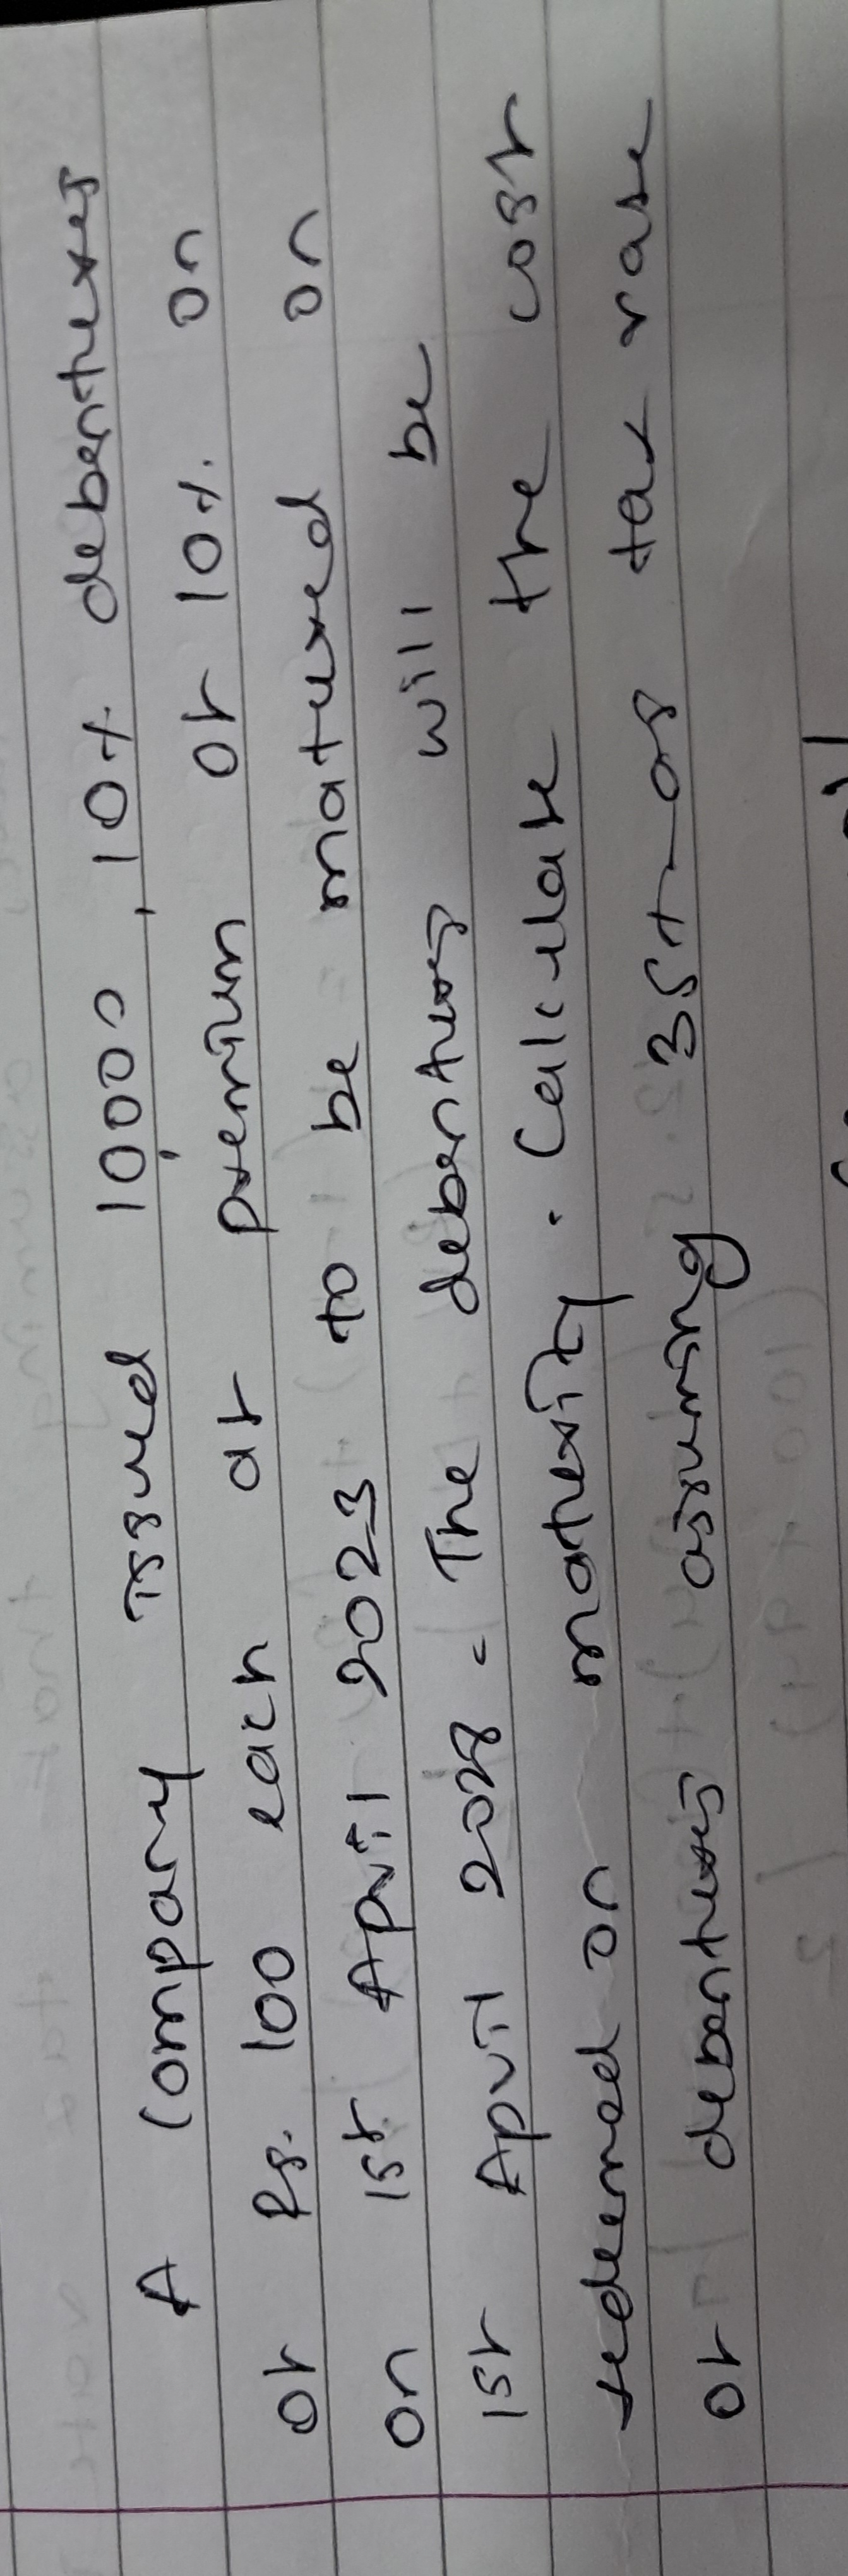 A Company issued 10,000, 10% debentures
of Rs. 100 each at premium of 10% on
on 1st April 2023 to be matured on
1st April 2028. The debentures will be
redeemed on maturity. Calculate the cost
of debentures assuming 35% as tax rate